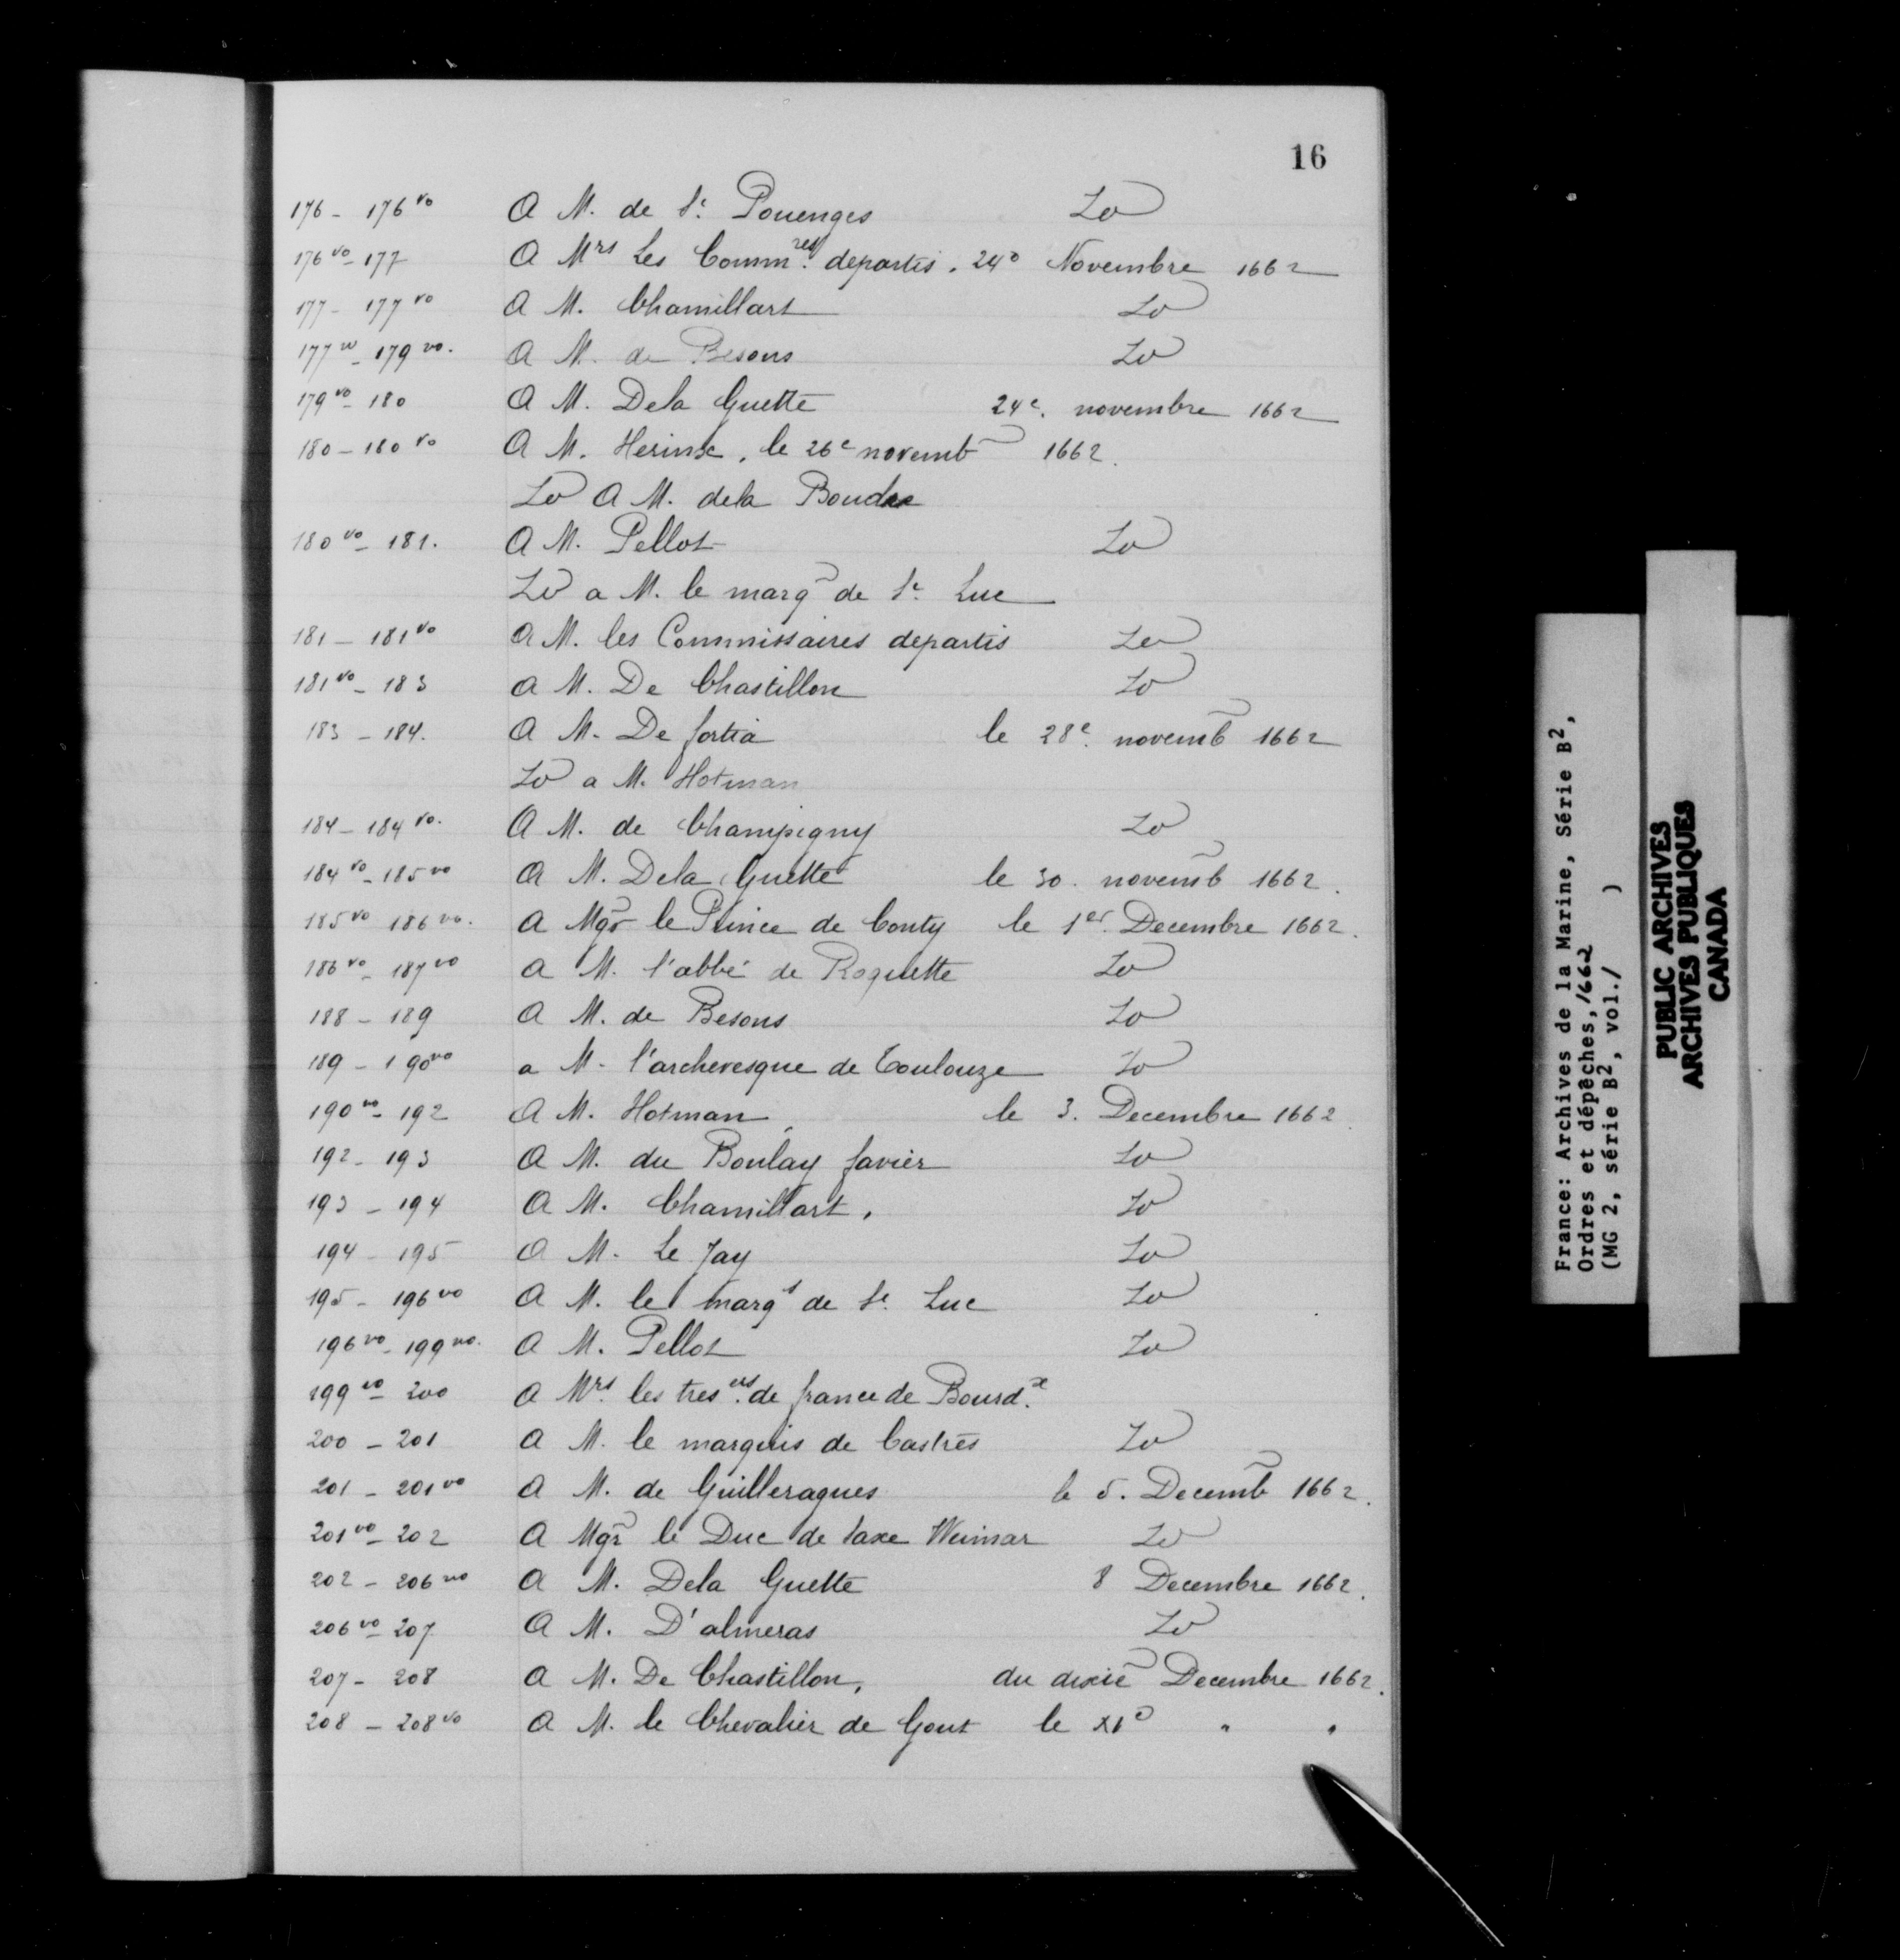 16
176 - 176 vo A M. de St. Pouenges Do
176 vo - 177 A Mrs Les Commres. departis. 24e Novembre 1662
177 - 177 vo A M. Chamillart Do
177 vo - 179 vo. A M. de Besons Do
179 vo - 180 A M. Dela Guette 24e. novembre 1662
180 - 180 vo A M. Herinx, le 26e novemb 1662.
Do A M. dela
180 vo - 181. A M. Pellot Do
Do a M. le marq de St. Luc
181 - 181 vo A M. les Commissaires departis Do
181 vo - 183 A M. De Chastillon Do
183 - 184. A M. De fortia le 28e. novemb 1662
Do a M. Hotman
184 - 184 vo. A M. de Champigny Do
184 vo - 185 vo A M. Dela Guette le 30. novemb 1662.
185 vo 186 vo. A Mgr le Prince de Conty le 1er. Decembre 1662.
186 vo - 187 vo A M. l'abbé de Roquette Do
188 - 189 A M. de Besons Do
189 - 190 vo a M. l'archevesque de Toulouze Do
190 vo - 192 A M. Hotman le 3. Decembre 1662.
192 - 193 A M. du Boulay favier Do
193 - 194 A M. Chamillart. Do
194 - 195 A M. Le Jay Do
195 - 196 vo A M. le marqs de St. Luc Do
196 vo - 199 vo. A M. Pellot Do
199 vo - 200 A Mrs. les tresers. de france de Bourdx.
200 - 201 A M. le marquis de Castres Do
201 - 201 vo A M. de Guilleragues le 5. Decemb 1662.
201 vo - 202 A Mgr le Duc de Saxe Weimar Do
202 - 206 vo A M. Dela Guette 8 Decembre 1662.
206 vo - 207 A M. D'almeras Do
207 - 208 A M. De Chastillon, du dixie Decembre 1662.
208 - 208 vo A M. le Chevalier de Gout le XIe " "
France: Archives de la Marine, Série B2,
Ordres et dépêches, 1662
(MG 2, série B2, vol. 1 )
PUBLIC ARCHIVES
ARCHIVES PUBLIQUES
CANADA